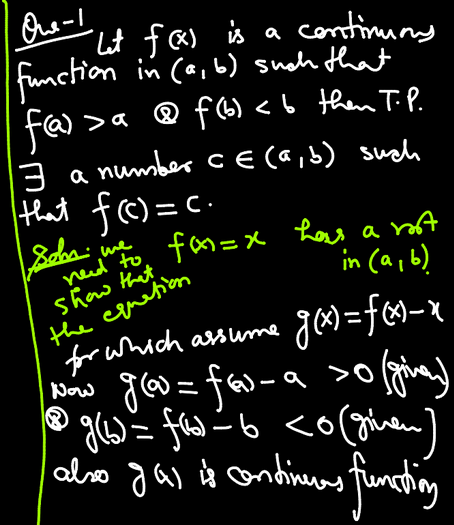 Que-1 Let f(x) is a continuous
function in (a,b) such that
f(a) > a & f(b) < b then T.P.
∃ a number c ∈ (a,b) such
that f(c) = c.
Soln. we need to show that the equation f(x) = x has a root in (a,b)
for which assume g(x) = f(x) - x
Now g(a) = f(a) - a > 0 (given)
& g(b) = f(b) - b < 0 (given)
also g(x) is continuous function